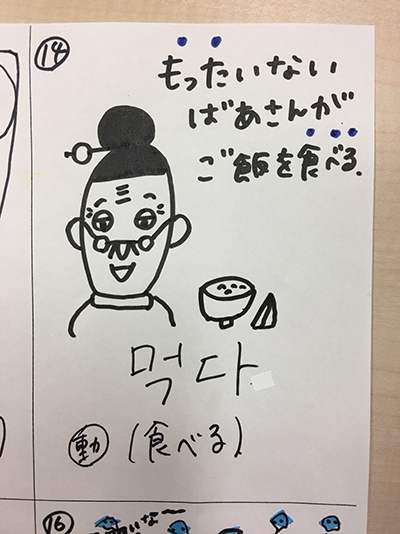 ⑭
もったいない
ばあさんが
ご飯を食べる.
먹다
動 (食べる)
16
いな〜